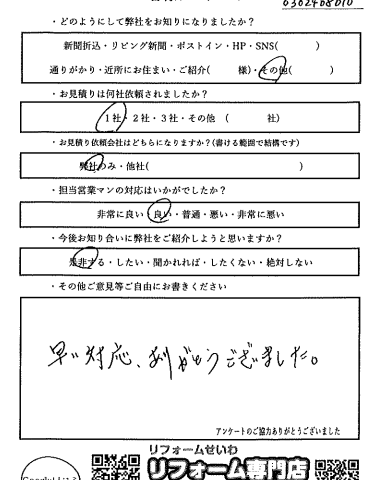 ・どのようにして弊社をお知りになりましたか？
新聞折込・リビング新聞・ポストイン・HP・SNS(　　　)
通りがかり・近所にお住まい・ご紹介(　　　様)・その他(　　　)
・お見積りは何社依頼されましたか？
1社・2社・3社・その他　(　　　社)
・お見積り依頼会社はどちらになりますか？(書ける範囲で結構です)
弊社のみ・他社(　　　)
・担当営業マンの対応はいかがでしたか？
非常に良い・良い・普通・悪い・非常に悪い
・今後お知り合いに弊社をご紹介しようと思いますか？
是非する・したい・聞かれれば・したくない・絶対しない
・その他ご意見等ご自由にお書きください
早い対応、ありがとうございました。
アンケートのご協力ありがとうございました
リフォームせいわ
リフォーム専門店